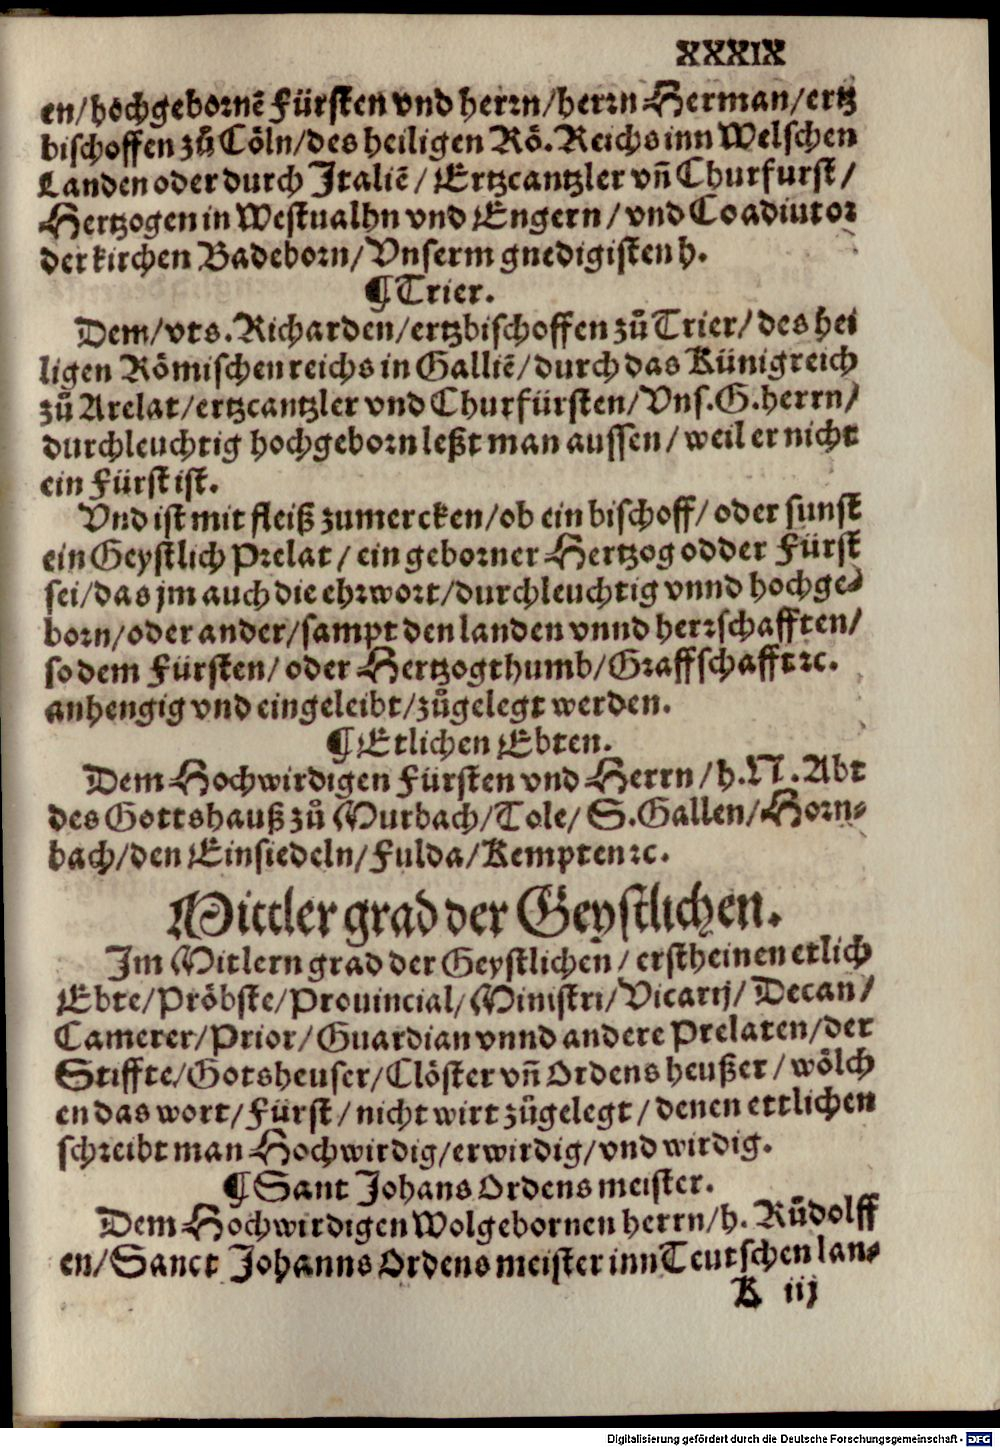 XXXIX
en/hochgebornē Fürsten vnd herrn/herrn Herman/ertz
bischoffen zů Cöln/des heiligen Rö. Reichs inn Welschen
Landen oder durch Italiē / Ertzcantzler vñ Churfurst /
Hertzogen in Westualhn vnd Engern / vnd Coadiutor
der kirchen Badeborn/Vnserm gnedigisten h.
¶ Trier.
Dem/vts. Richarden/ertzbischoffen zů Trier/des hei
ligen Römischen reichs in Galliē/durch das Künigreich
zů Arelat/ertzcantzler vnd Churfürsten/Vns. G. herrn/
durchleuchtig hochgeborn leßt man aussen/weil er nicht
ein Fürst ist.
Vnd ist mit fleiß zumercken/ob ein bischoff/oder sunst
ein Geystlich Prelat / ein geborner Hertzog odder Fürst
sei/das jm auch die ehrwort/durchleuchtig vnnd hochge-
born/oder ander/sampt den landen vnnd herrschafften/
so dem Fürsten/ oder Hertzogthumb/Graffschafft ꝛc.
anhengig vnd eingeleibt/zůgelegt werden.
¶ Etlichen Ebten.
Dem Hochwirdigen Fürsten vnd Herrn /h. N. Abt
des Gottshauß zů Murbach/Tole/ S. Gallen/Horn-
bach/den Einsiedeln/Fulda/Kempten ꝛc.
Mittler grad der Geystlichen.
Im Mitlern grad der Geystlichen / erstheinen etlich
Ebte/Pröbste/Prouincial/Ministri/Vicarij/ Decan/
Camerer/Prior/Guardian vnnd andere Prelaten/der
Stiffte/Gotsheuser/Clöster vñ Ordens heußer / wölch
en das wort/Fürst / nicht wirt zůgelegt / denen ettlichen
schreibt man Hochwirdig/erwirdig/vnd wirdig.
¶ Sant Johans Ordens meister.
Dem Hochwirdigen Wolgebornen herrn/h. Růdolff
en/Sanct Johanns Ordens meister inn Teutschen lan-
K iij
Digitalisierung gefördert durch die Deutsche Forschungsgemeinschaft - DFG